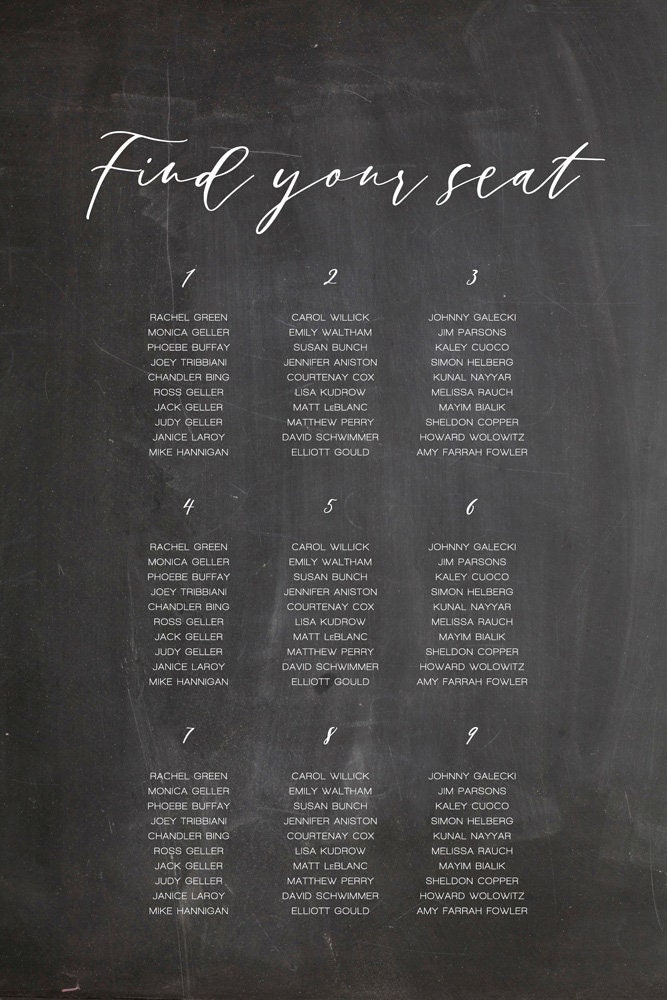 Find your seat
1
RACHEL GREEN
MONICA GELLER
PHOEBE BUFFAY
JOEY TRIBBIANI
CHANDLER BING
ROSS GELLER
JACK GELLER
JUDY GELLER
JANICE LAROY
MIKE HANNIGAN
2
CAROL WILLICK
EMILY WALTHAM
SUSAN BUNCH
JENNIFER ANISTON
COURTENAY COX
LISA KUDROW
MATT LeBLANC
MATTHEW PERRY
DAVID SCHWIMMER
ELLIOTT GOULD
3
JOHNNY GALECKI
JIM PARSONS
KALEY CUOCO
SIMON HELBERG
KUNAL NAYYAR
MELISSA RAUCH
MAYIM BIALIK
SHELDON COPPER
HOWARD WOLOWITZ
AMY FARRAH FOWLER
4
RACHEL GREEN
MONICA GELLER
PHOEBE BUFFAY
JOEY TRIBBIANI
CHANDLER BING
ROSS GELLER
JACK GELLER
JUDY GELLER
JANICE LAROY
MIKE HANNIGAN
5
CAROL WILLICK
EMILY WALTHAM
SUSAN BUNCH
JENNIFER ANISTON
COURTENAY COX
LISA KUDROW
MATT LeBLANC
MATTHEW PERRY
DAVID SCHWIMMER
ELLIOTT GOULD
6
JOHNNY GALECKI
JIM PARSONS
KALEY CUOCO
SIMON HELBERG
KUNAL NAYYAR
MELISSA RAUCH
MAYIM BIALIK
SHELDON COPPER
HOWARD WOLOWITZ
AMY FARRAH FOWLER
7
RACHEL GREEN
MONICA GELLER
PHOEBE BUFFAY
JOEY TRIBBIANI
CHANDLER BING
ROSS GELLER
JACK GELLER
JUDY GELLER
JANICE LAROY
MIKE HANNIGAN
8
CAROL WILLICK
EMILY WALTHAM
SUSAN BUNCH
JENNIFER ANISTON
COURTENAY COX
LISA KUDROW
MATT LeBLANC
MATTHEW PERRY
DAVID SCHWIMMER
ELLIOTT GOULD
9
JOHNNY GALECKI
JIM PARSONS
KALEY CUOCO
SIMON HELBERG
KUNAL NAYYAR
MELISSA RAUCH
MAYIM BIALIK
SHELDON COPPER
HOWARD WOLOWITZ
AMY FARRAH FOWLER